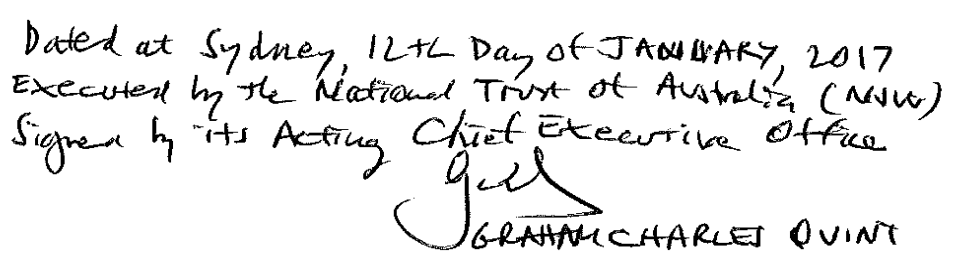 Dated at Sydney, 12th Day of JANUARY, 2017
Executed by the National Trust of Australia (NSW)
Signed by its Acting Chief Executive Office
GRAHAM CHARLES QUINT